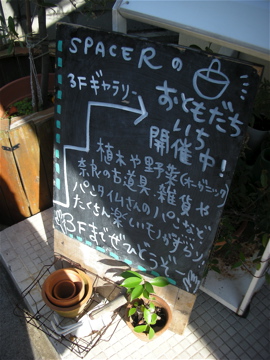 SPACERの
3Fギャラリー
おともだち
いち
開催中!
植木や野菜(オーガニック)
奈良の古道具、雑貨や
パンタイムさんのパンなど
たくさん楽しいものがずらり
3Fまでぜひどうぞ